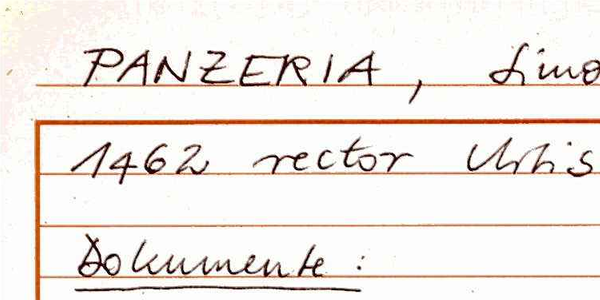 PANZERIA, Simo
1462 rector Urbis
Dokumente: